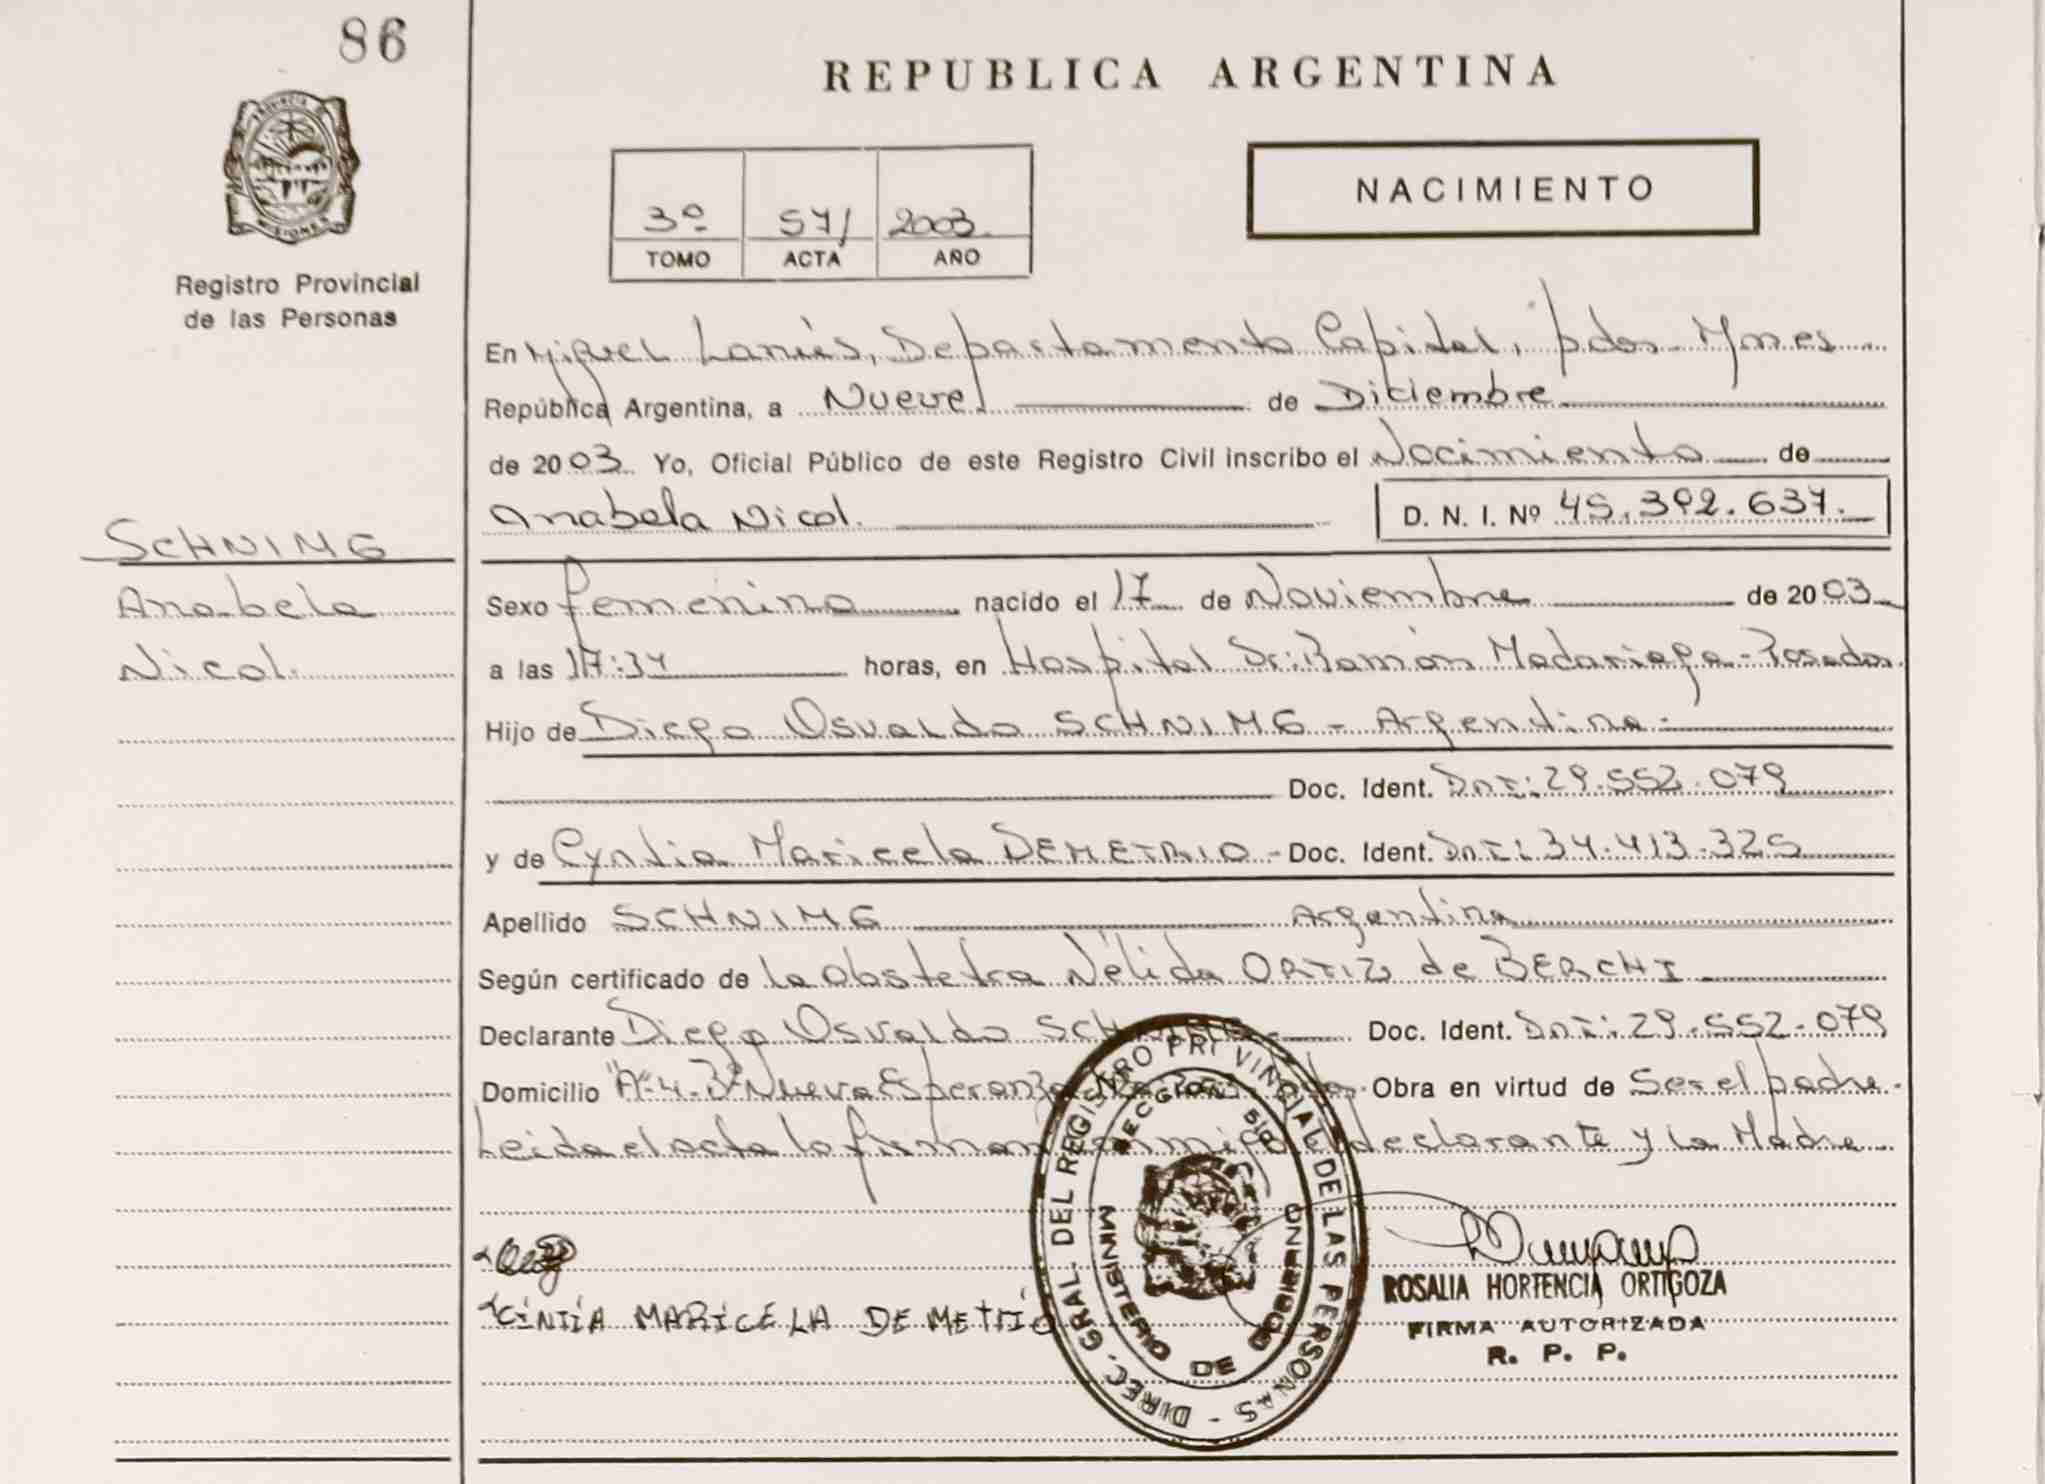 86
REPUBLICA ARGENTINA
PROVINCIA DE
MISIONES
Registro Provincial
de las Personas
NACIMIENTO
3º 57/ 2003
TOMO ACTA AÑO
En Miguel Lanús, Departamento Capital, pdas. Mnes
República Argentina, a Nueve de Diciembre
de 2003 Yo, Oficial Público de este Registro Civil inscribo el Nacimiento de
Anabela Nicol. D. N. I. Nº 45.392.637.
SCHNIMG
Anabela
Nicol.
Sexo femenino nacido el 17 de Noviembre de 2003
a las 17:34 horas, en Hospital Dr. Ramón Madariaga - Posadas
Hijo de Diego Osvaldo SCHNIMG - Argentina -
Doc. Ident. DNI: 29.552.079
y de Cyntia Maricela DEMETRIO - Doc. Ident. DNI: 34.413.325
Apellido SCHNIMG Argentina
Según certificado de la Obstetra Nélida ORTIZ de BERCHI
Declarante Diego Osvaldo SCHNIMG - Doc. Ident. DNI: 29.552.079
Domicilio "A" 4. Bº Nueva Esperanza Obra en virtud de Ser el padre -
Leida el acta la firman conmigo el declarante y la Madre
CINTIA MARICELA DEMETRIO
DIREC. GRAL. DEL REGISTRO PROVINCIAL DE LAS PERSONAS -
MINISTERIO DE GOBIERNO
ROSALIA HORTENCIA ORTIGOZA
FIRMA AUTORIZADA
R. P. P.